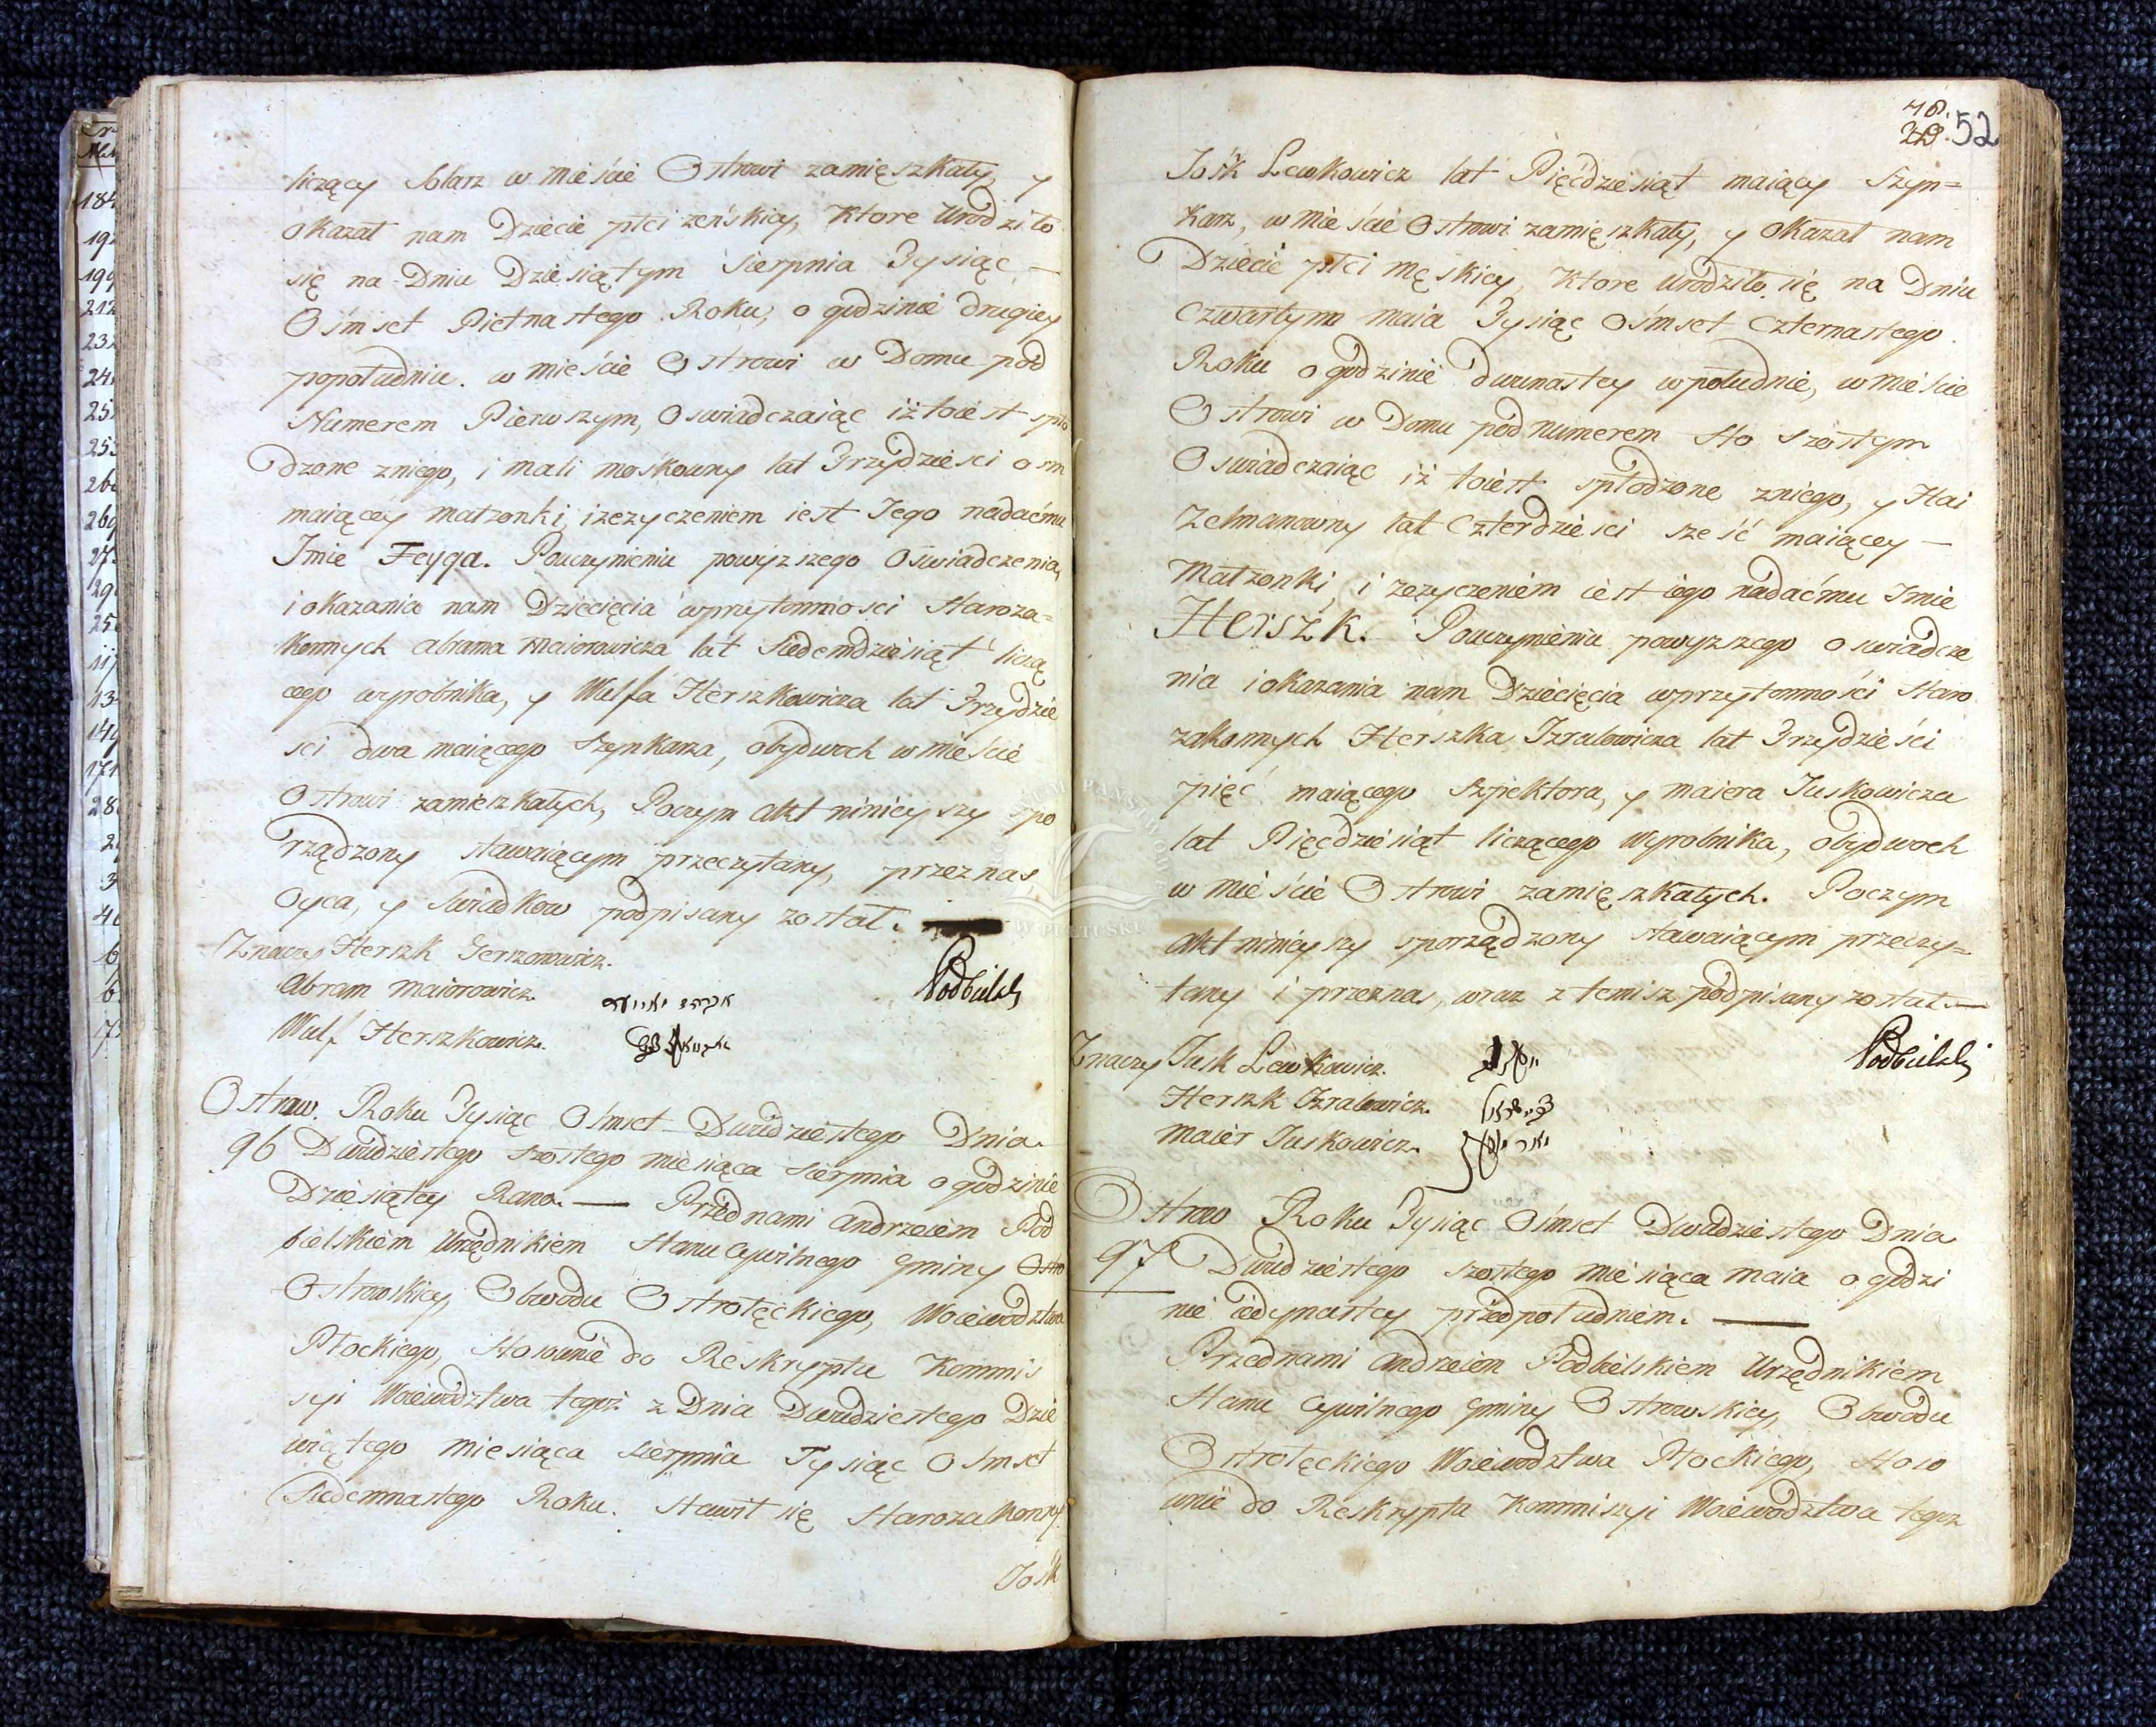 liczący Solarz w Mieście Ostrowi zamięszkały, y
okazał nam Dziecie płci żeńskiey, Ktore Urodziło
się na Dniu Dziesiątym Sierpnia Tysiąc —
Ośmset Pietnastego Roku, o godzinie drugiey
popołudniu. w mieście Ostrowi w Domu pod
Numerem Pierwszym, Oswiadczaiąc iż toiest spło
dzone zniego, i Mali Mośkowny lat Trzydzieści osm
maiącéy matzonki, izezyczeniem iest Jego nadaćmu
Jmie Feyga. Pouczynieniu powyzszego Oświadczenia,
i okazania nam Dziecięcia wprzytomności Staroza=
konnych Abrama Maiorowicza lat Siedemdziesiąt liczą
cego wyrobnika, y Wulfa Herszkowicza lat Trzydzie
sci dwa maiącego Szynkarza, obydwoch w mieście
Ostrowi zamieszkałych, Poczym Akt ninieyszy spo
rządzony stawaiącym przeczytany, przez nas,
Oyca, y Swiadkow podpisany został. —
Znaczy Herszk Gerszonowicz.
Abram Maiorowicz. Podbielski
Wulf Herszkowicz.
Ostrow. Roku Tysiąc Ośmset Dwudziestego Dnia
96 Dwudziestego szostego miesiąca Sierpnia o godzinie
Dziesiątey Rano. — Przednami Andrzeiem Pod
bielskiem Urzędnikiem Stanu Cywilnego Gminy
Ostrowskiey, Obwodu Ostrołęckiego, Woiewodztwa
Płockiego, Stosownie do Reskryptu Kommis
syi Woiewodztwa tegoż z Dnia Dwudziestego Dzie
wiątego Miesiąca Sierpnia Tysiąc Ośmset
Siedemnastego Roku. Stawił się Starozakonny
Jośk
52
Jośk Lewkowicz lat Pięćdziesiąt maiący Szyn=
karz, w mieście Ostrowi zamięszkały, y okazał nam
Dziecie płci męskiey, Ktore Urodziło się na Dniu
Czwartym Maia Tysiąc Ośmset Czternastego
Roku o godzinie dwunastey wpołudnie, w mieście
Ostrowi w Domu pod Numerem sto szostym
Oswiadczaiąc iż toiest spłodzone zniego, y Hai
Zelmanowny lat Czterdzieści sześć maiącey —
Matzonki, i zezyczeniem iest iego nadaćmu Jmie
Herszk. Pouczynieniu powyzszego oswiadcze
nia i okazania nam Dziecięcia wprzytomności Staro
zakonnych Herszka Izralowicza lat Trzydzieści
pięć maiącego Szpektora, y Maiera Juskowicza
lat Pięcdziesiąt liczącego Wyrobnika, obydwoch
w mieście Ostrowi zamięszkałych. Poczym
Akt ninieyszy sporządzony stawaiącym przeczy=
tany i przeznas, wraz z temisz podpisany został. —
Znaczy Jusk Lewkowicz. Podbielski
Herszk Izralowicz.
Maier Juskowicz.
Ostrow Roku Tysiąc Ośmset Dwudziestego Dnia
97 Dwudziestego szostego miesiąca Maia o godzi
nie iedynastey przedpołudniem. —
Przednami Andrzeiem Podbielskiem Urzędnikiem
Stanu Cywilnego Gminy Ostrowskiey, Obwodu
Ostrołęckiego Woiewodztwa Płockiego, Stoso
wnie do Reskryptu Kommissyi Woiewodztwa tegoz